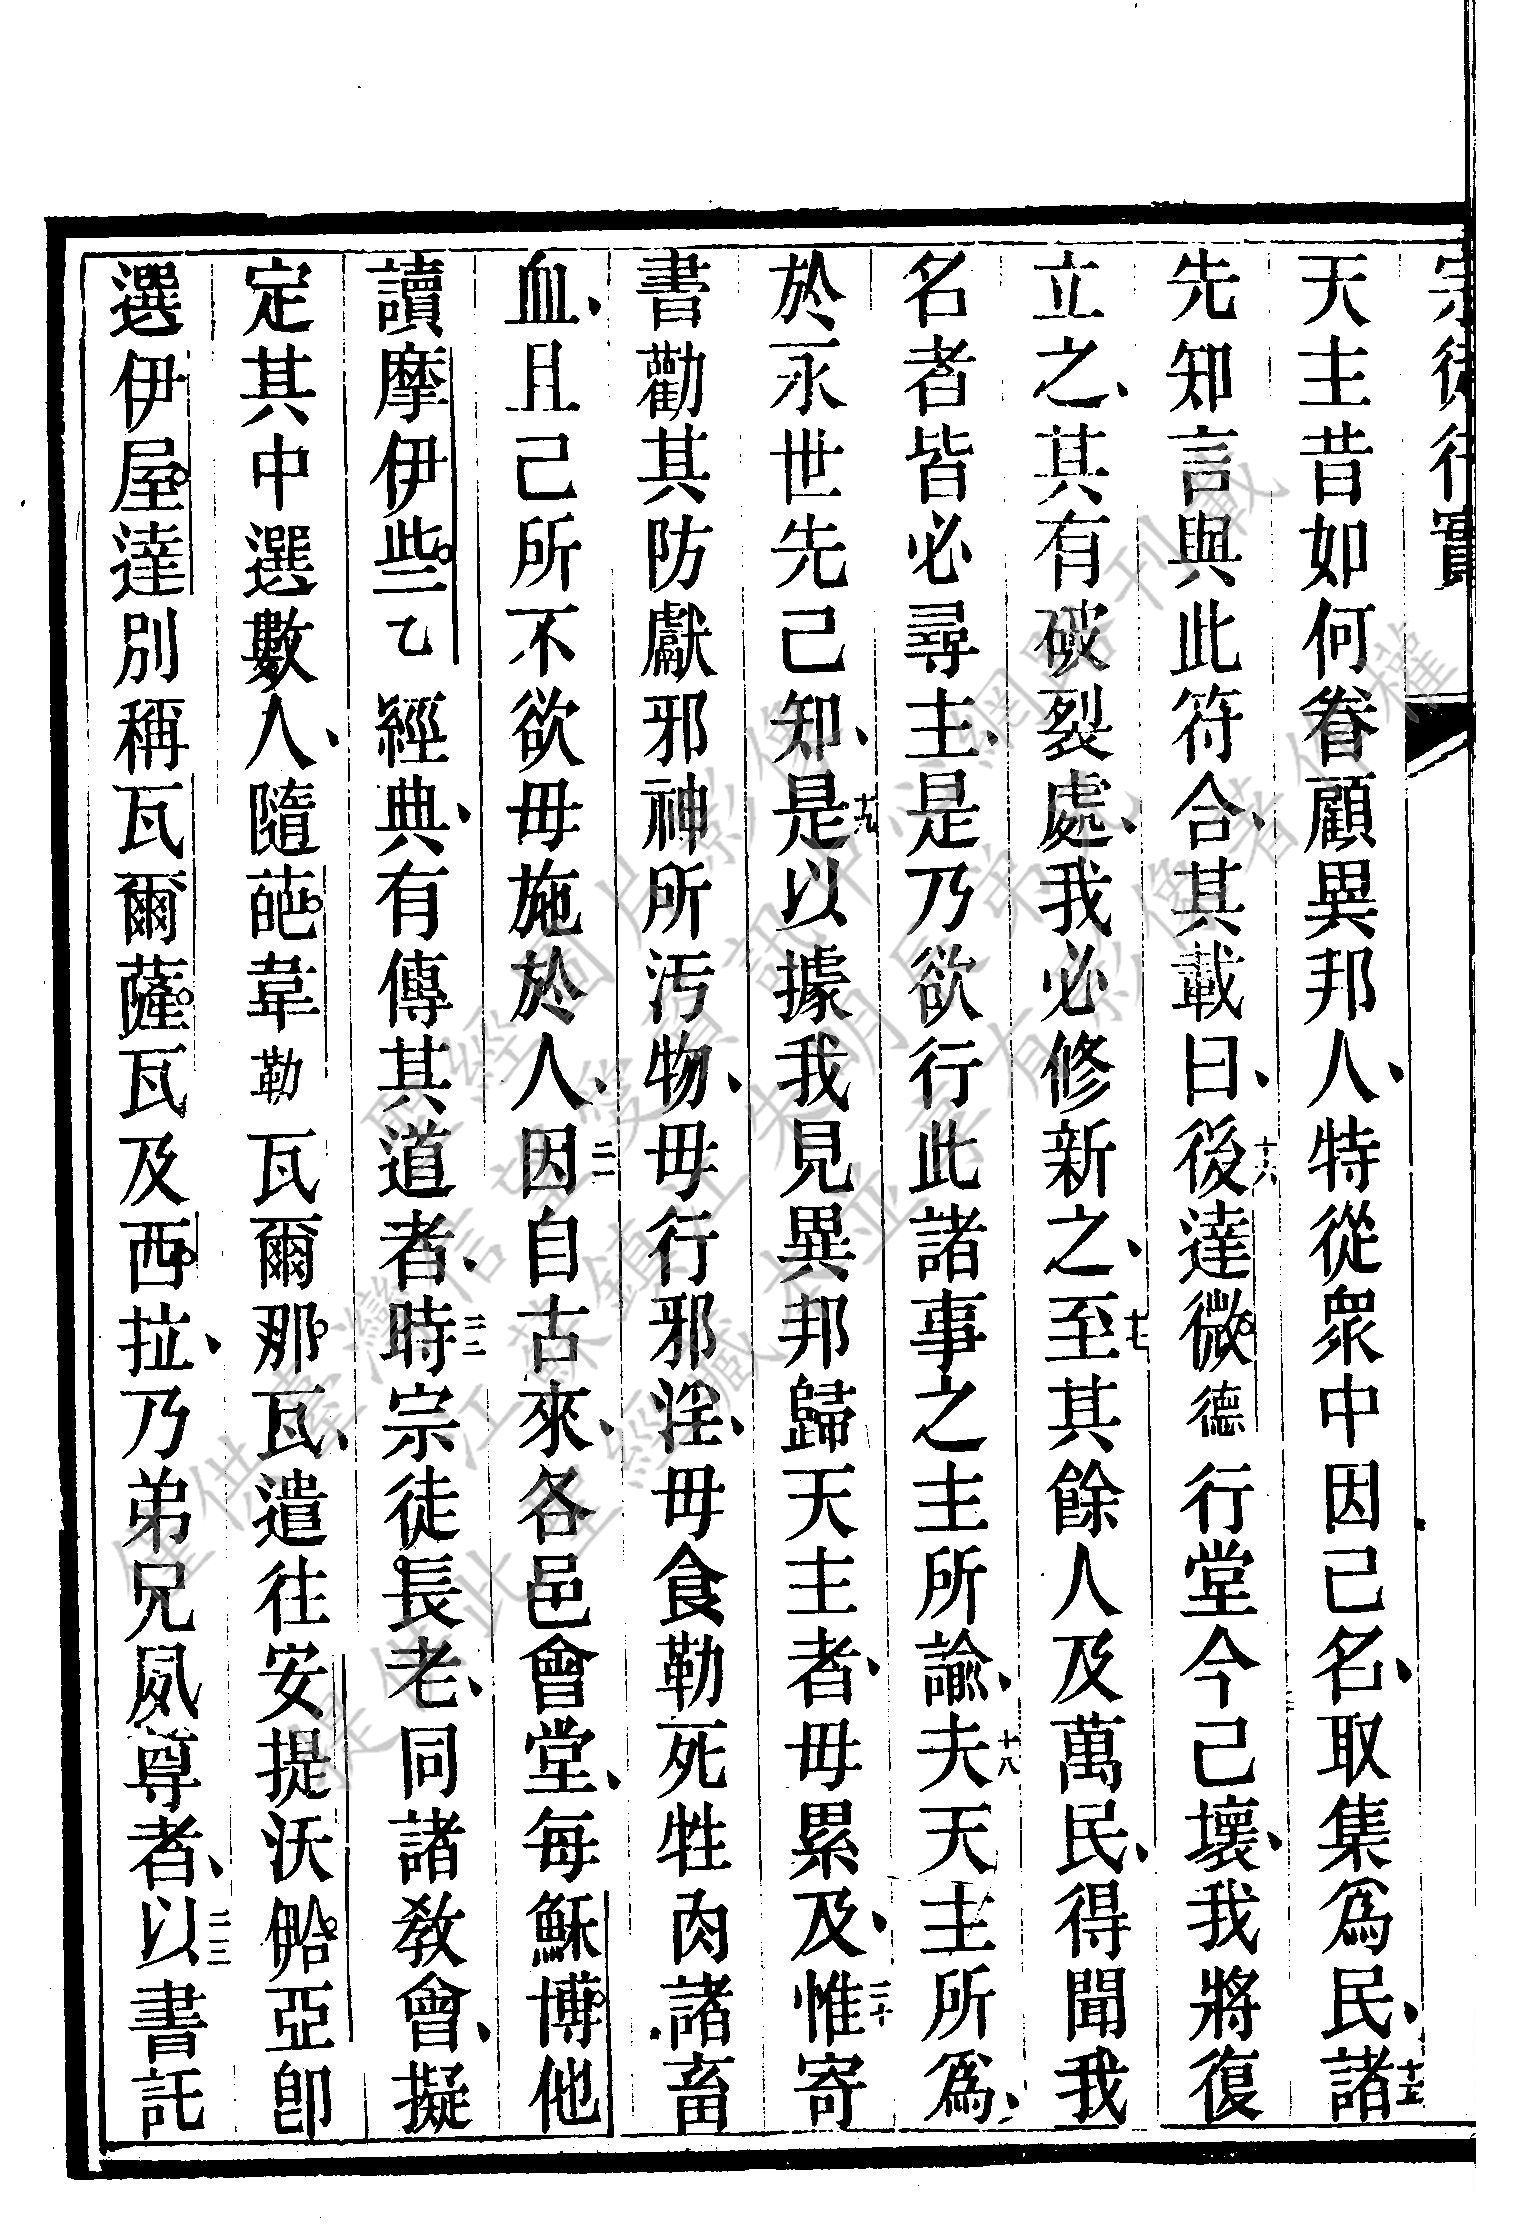 宗徒行實
天主昔如何眷顧異邦人、特從衆中因己名、取集爲民、十五諸
先知言與此符合、其載曰、十六後達微德行堂今己壞、我將復
立之、其有破裂處、我必修新之、十七至其餘人及萬民、得聞我
名者皆必尋主、是乃欲行此諸事之主所諭、十八夫天主所爲、
於永世先己知、十九是以據我見異邦歸天主者、毋累及、二十惟寄
書勸其防獻邪神所汚物、毋行邪淫、毋食勒死牲肉諸畜
血、且己所不欲毋施於人、二一因自古來、各邑會堂、每穌博他
讀摩伊些乙經典、有傳其道者、二二時宗徒長老、同諸敎會、擬
定其中選數人、隨葩韋勒瓦爾那瓦、遣往安提沃䀫亞卽
選伊屋達別稱瓦爾薩瓦及西拉、乃弟兄夙尊者、二三以書託